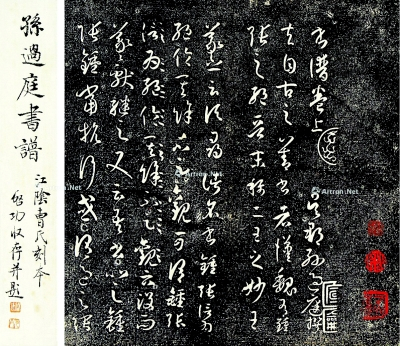 書譜卷上 吳郡孫過庭撰
夫自古之善書者漢魏有鍾
張之絕晉末稱二王之妙王
羲之云頃尋諸名書鍾張信
為絕倫其餘不足觀可謂鍾張
信為絕倫其餘不足觀云沒而
羲獻繼之又云吾書比之鍾
張鍾當抗行或謂過之張
孫過庭書譜
江陰曹氏刻本
啟功收存并題
Artron.Net
Artron.Net